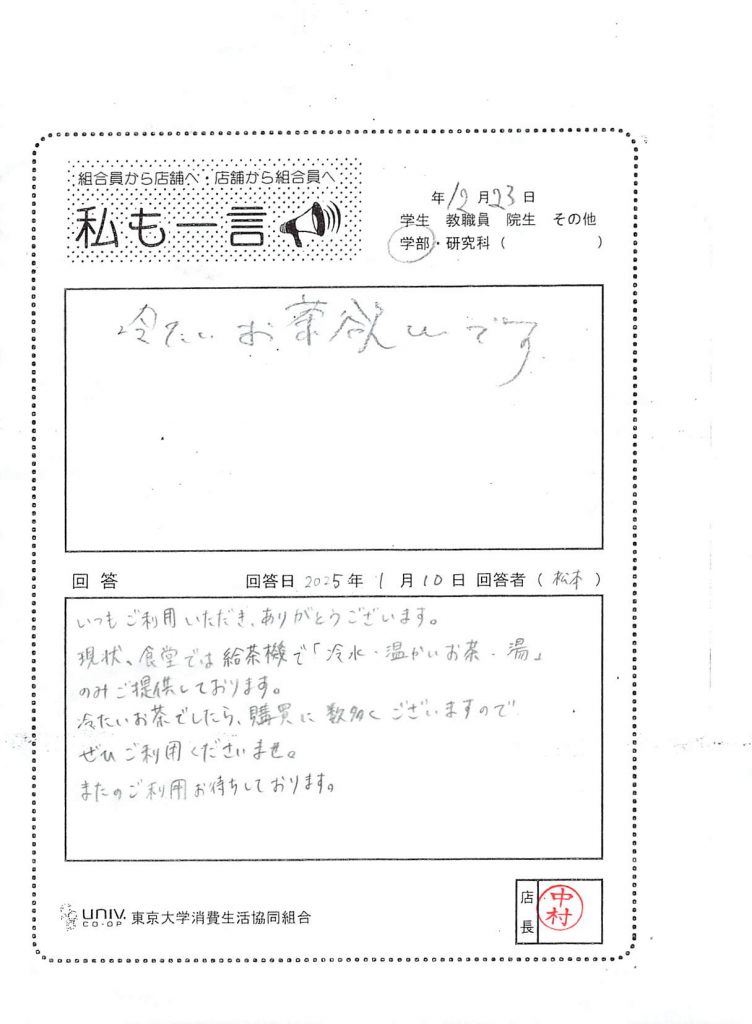 組合員から店舗へ・店舗から組合員へ
私も一言
年12月23日
学生 教職員 院生 その他
学部・研究科( )
冷たいお茶欲しいです
回答 回答日 2025年 1月10日 回答者(松本)
いつもご利用いただき、ありがとうございます。
現状、食堂では給茶機で「冷水・温かいお茶・湯」
のみご提供しております。
冷たいお茶でしたら、購買に数多くございますので
ぜひご利用くださいませ。
またのご利用お待ちしております。
UNIV.
CO-OP
東京大学消費生活協同組合
店長
中村